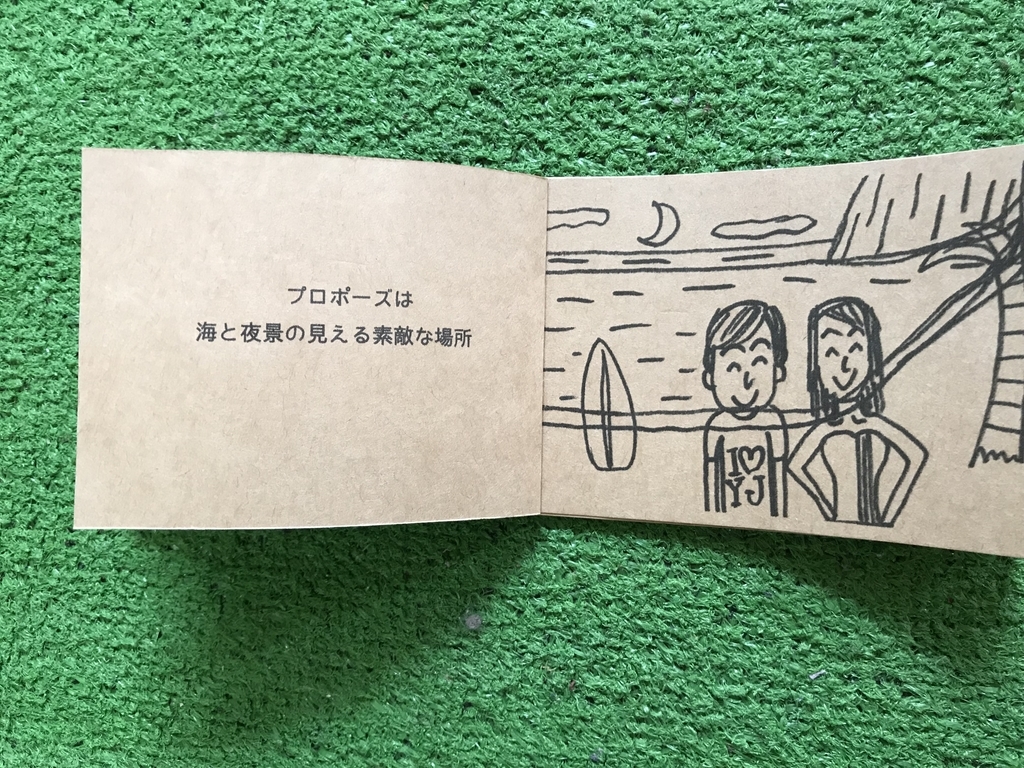 プロポーズは
海と夜景の見える素敵な場所
I♡
YJ